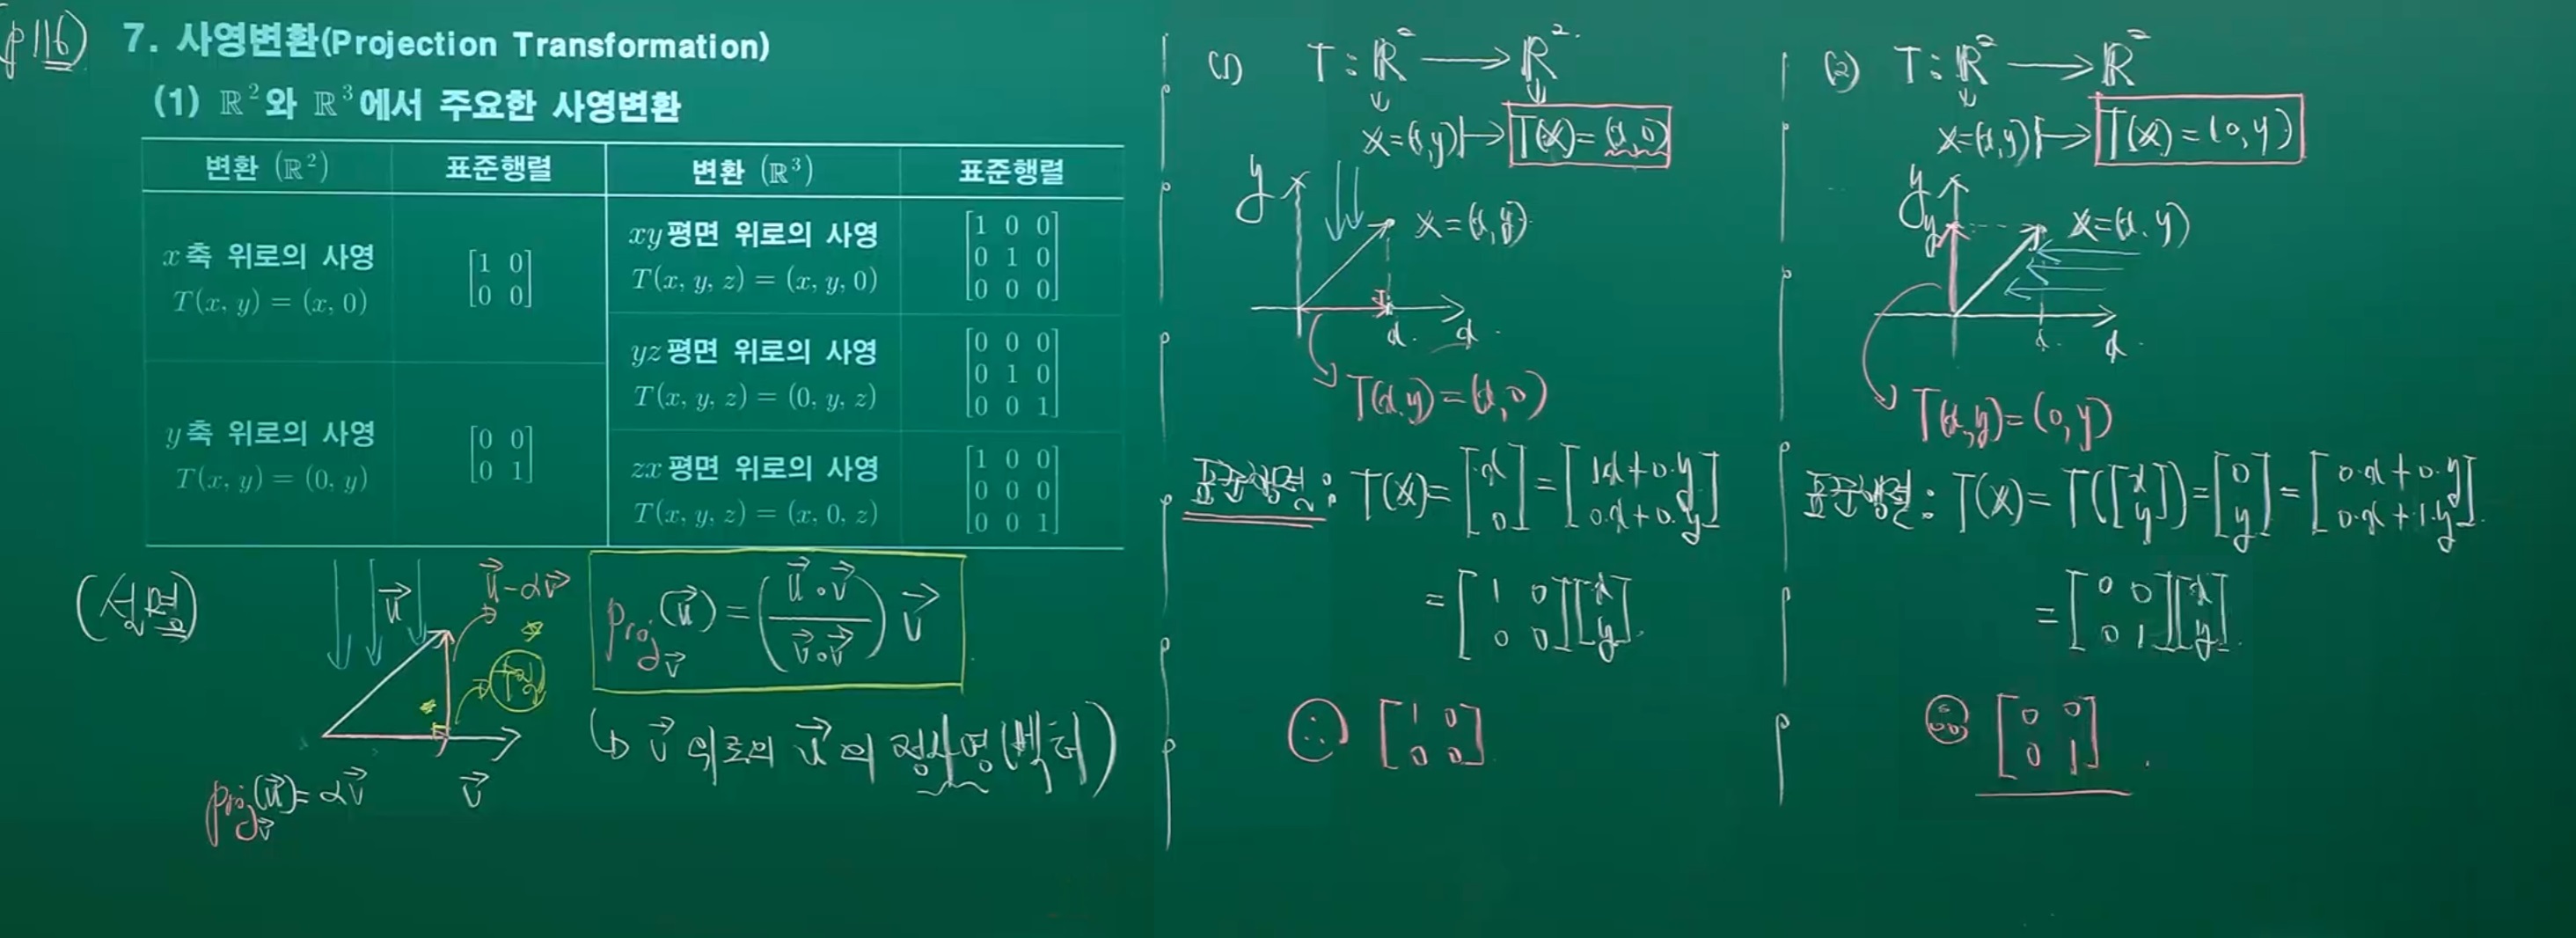 (p116)
7. 사영변환(Projection Transformation)
(1) ℝ²와 ℝ³에서 주요한 사영변환
변환 (ℝ²) 표준행렬 변환 (ℝ³) 표준행렬
x축 위로의 사영
T(x, y) = (x, 0)
[1 0]
[0 0]
y축 위로의 사영
T(x, y) = (0, y)
[0 0]
[0 1]
xy평면 위로의 사영
T(x, y, z) = (x, y, 0)
[1 0 0]
[0 1 0]
[0 0 0]
yz평면 위로의 사영
T(x, y, z) = (0, y, z)
[0 0 0]
[0 1 0]
[0 0 1]
zx평면 위로의 사영
T(x, y, z) = (x, 0, z)
[1 0 0]
[0 0 0]
[0 0 1]
(설명)
u⃗
u⃗-αv⃗
proj_v⃗(u⃗)= αv⃗
v⃗
proj_v⃗(u⃗) = (u⃗∘v⃗ / v⃗∘v⃗) v⃗
↳ v⃗ 위로의 u⃗의 정사영(벡터)
(1) T : ℝ² → ℝ²
X=(x,y) ↦ T(X)=(x,0)
y
X=(x,y)
x x
T(x,y)=(x,0)
표준행렬: T(X)=[x; 0]=[1x+0·y; 0·x+0·y]
=[1 0; 0 0][x; y]
∴ [1 0; 0 0]
(2) T : ℝ² → ℝ²
X=(x,y) ↦ T(X)=(0,y)
y
y
X=(x,y)
x x
T(x,y)=(0,y)
표준행렬: T(X)= T([x; y])=[0; y]=[0·x+0·y; 0·x+1·y]
=[0 0; 0 1][x; y]
∴ [0 0; 0 1]